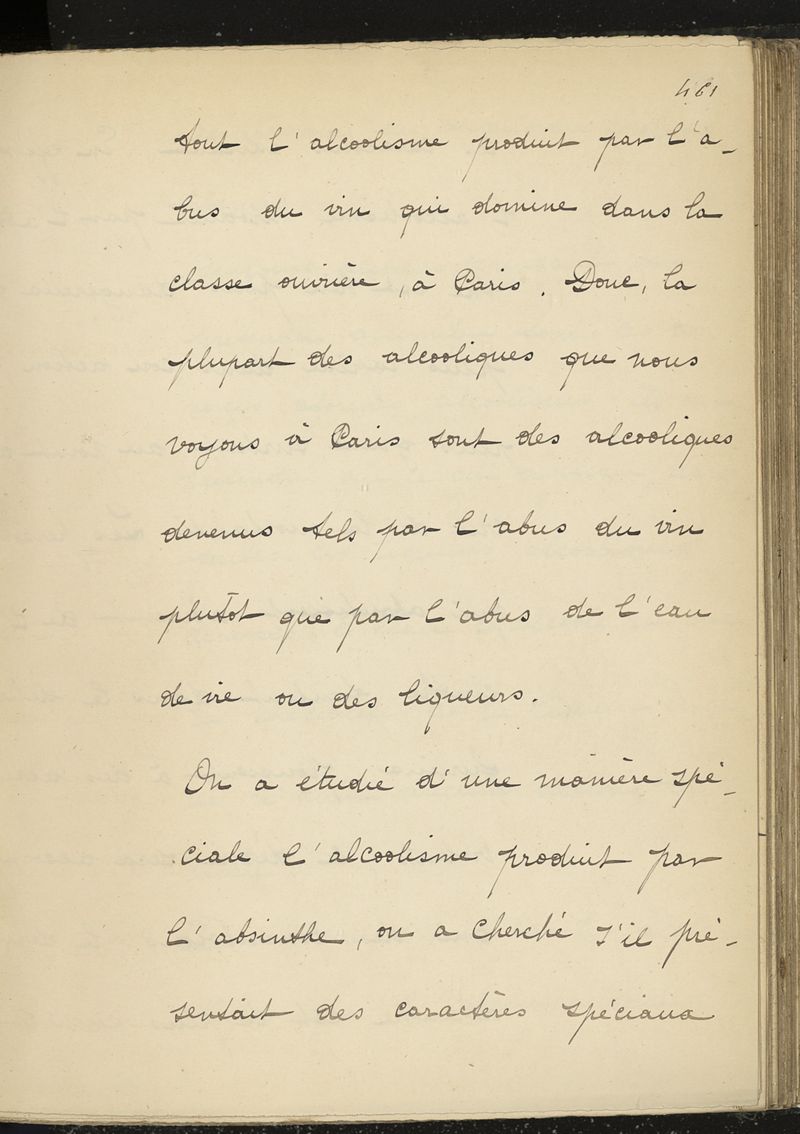 461
tout l'alcoolisme produit par l'a-
bus du vin qui domine dans la
classe ouvrière, à Paris. Donc, la
plupart des alcooliques que nous
voyons à Paris sont des alcooliques
devenus tels par l'abus du vin
plutôt que par l'abus de l'eau
de vie ou des liqueurs.
On a étudié d'une manière spé-
ciale l'alcoolisme produit par
l'absinthe, on a cherché s'il pré-
sentait des caractères spéciaux